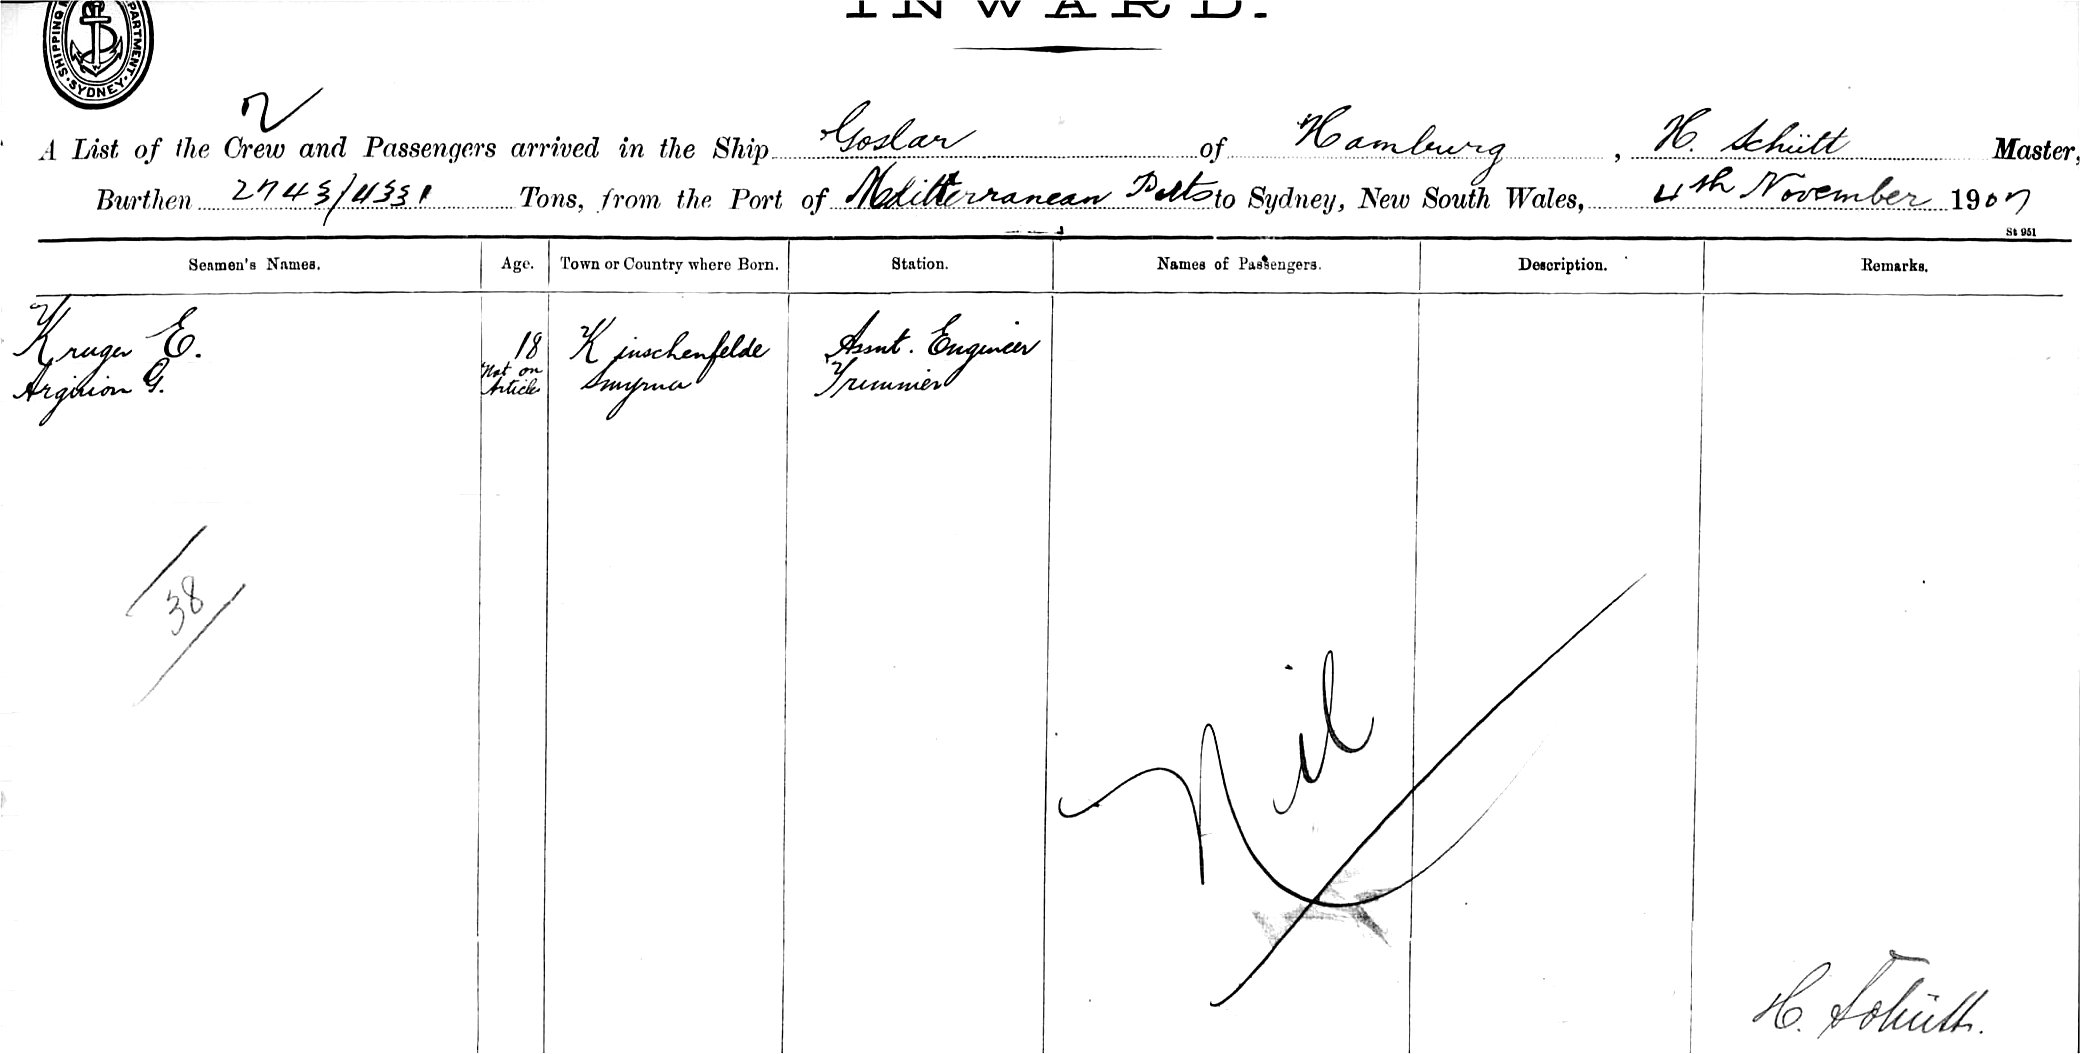 INWARD.
SHIPPING DEPARTMENT. SYDNEY
2
A List of the Crew and Passengers arrived in the Ship Goslar of Hamburg, H. Schütt Master,
Burthen 2743/4331 Tons, from the Port of Mediterranean Ports to Sydney, New South Wales, 4th November 1907
St 951
Seamen's Names. Age. Town or Country where Born. Station. Names of Passengers. Description. Remarks.
Kruger E. 18 Kinschenfelde Assnt. Engineer
Argirion G. Not on Articles Smyrna Trimmer
38
Nil
H. Schütt.